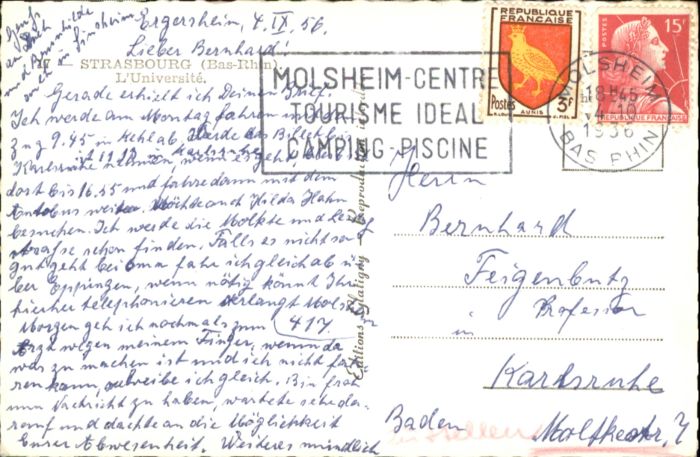 Ergersheim, 4. IX. 56.
Lieber Bernhard!
STRASBOURG (Bas-Rhin)
L'Université.
Gerade erhielt ich Deinen Brief.
Ich werde am Montag fahren
zug 9.45 in Kehl ab, werde das Billet bis
Karlsruhe nehmen, wenn es geht bleibe ich
dort bis 16.45 und fahre dann mit dem
Autobus weiter. Möchte auch Hilda Hahn
besuchen. Ich werde die Molkte und
strasse schon finden. Falls es nicht so
gut geht bei Oma fahr ich gleich ab ü-
ber Eppingen, wenn nötig könnt Ihr
hierher telephonieren verlangt Molsheim
Morgen geh ich nochmals zum 417
Arzt wegen meinem Finger, wenn da
was zu machen ist und ich nicht fah-
ren kann, schreibe ich gleich. Bin froh
nun Nachricht zu haben, wartete sehr da-
rauf und dachte an die Möglichkeit
Eurer Abwesenheit. Weiteres mündlich
Gruß
an Dich
und Gunhilde
auch in Sinsheim
Editions Platigny - Reproduction interdite
MOLSHEIM-CENTRE
TOURISME IDEAL
CAMPING-PISCINE
REPUBLIQUE FRANÇAISE
Postes 3F
AUNIS
15F
POSTES
REPUBLIQUE FRANÇAISE
MOLSHEIM
18H45
1956
BAS RHIN
Herrn
Bernhard
Feigenbutz
Professor
in
Karlsruhe
Baden Moltkestr. 7